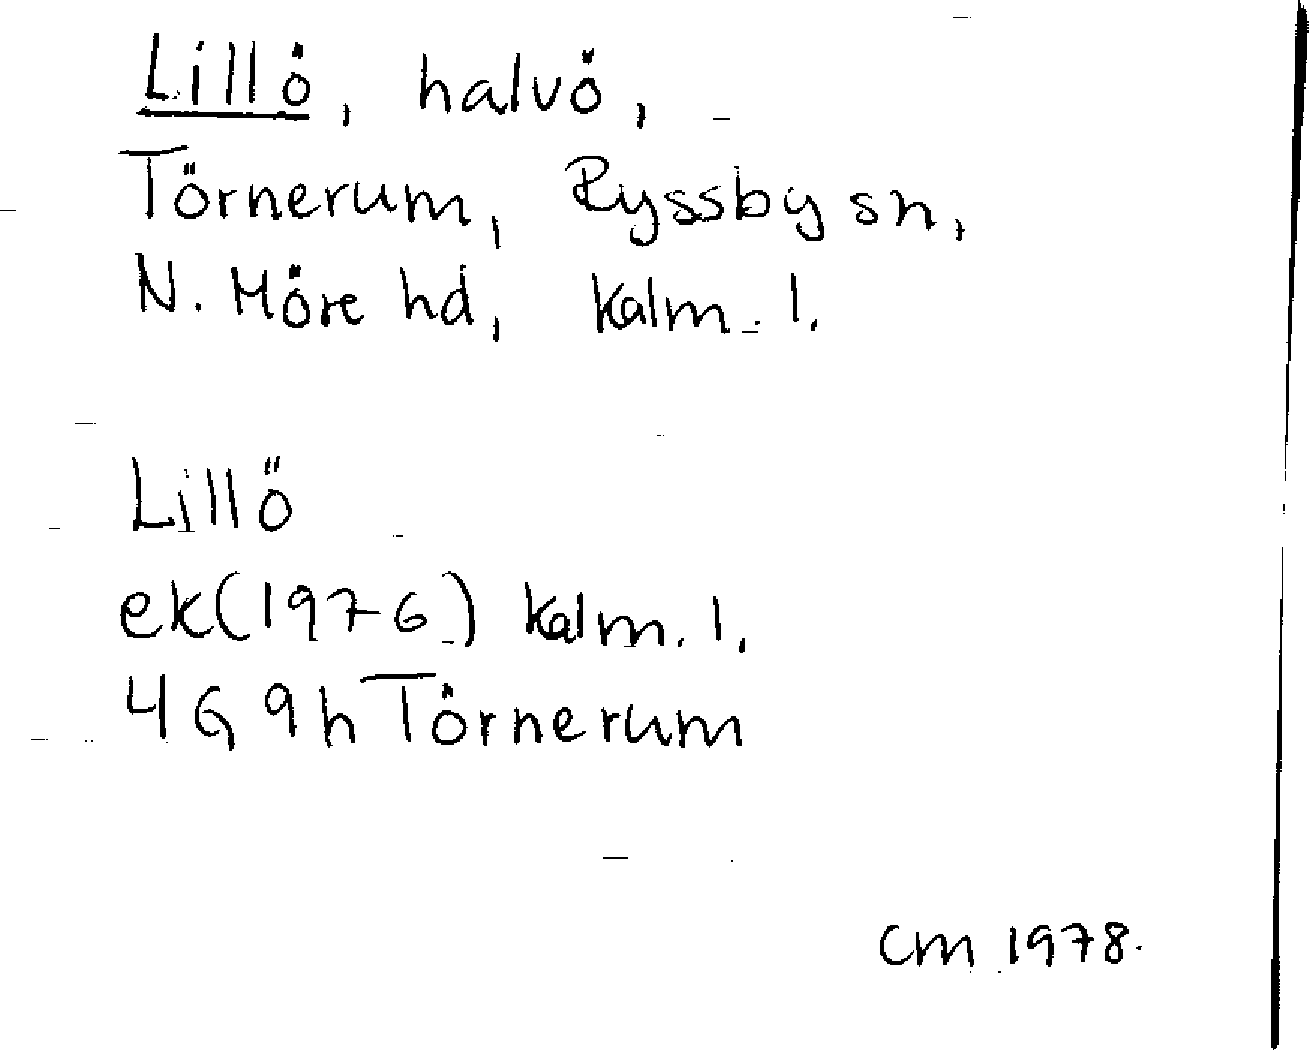 Lillö, halvö,
Törnerum, Ryssby sn,
N. Möre hd, Kalm. l.
Lillö
ek(1976) Kalm. l.
4G 9h Törnerum
CM 1978.